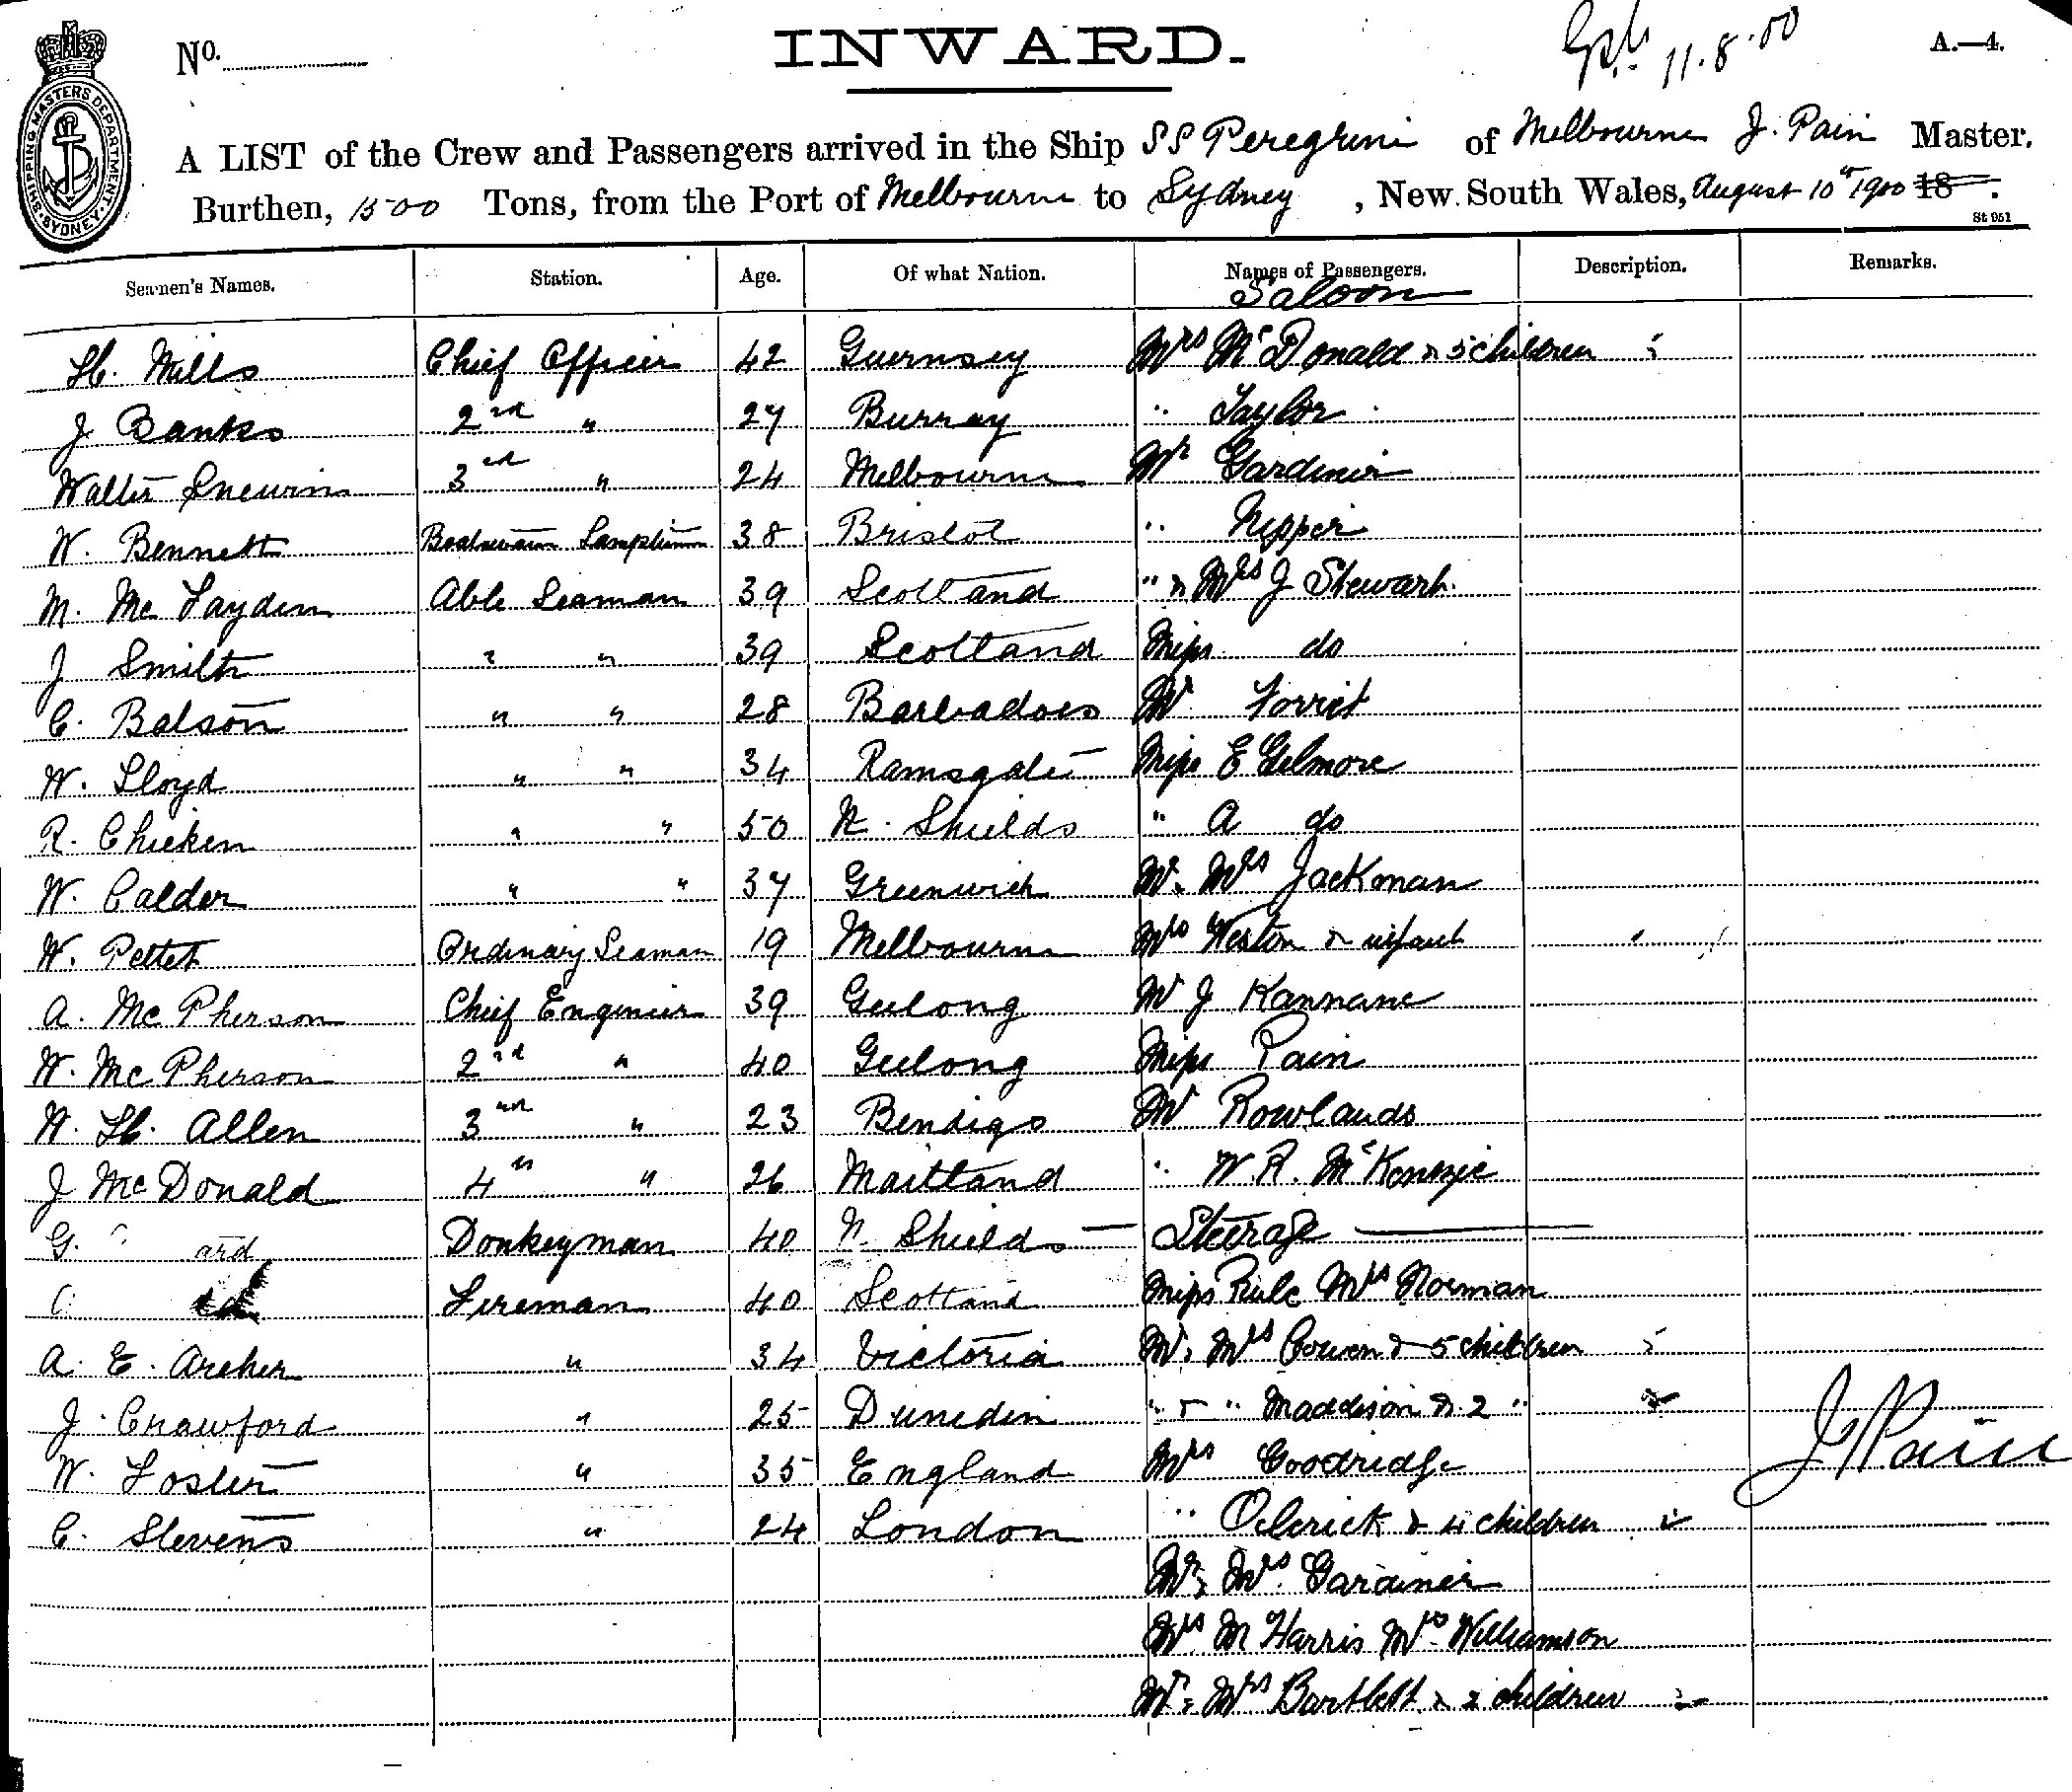 No. INWARD. 11.8.00 A.—4.
SHIPPING MASTERS DEPARTMENT. SYDNEY.
A LIST of the Crew and Passengers arrived in the Ship SS Peregrine of Melbourne J. Pain Master.
Burthen, 1500 Tons, from the Port of Melbourne to Sydney, New South Wales, August 10th 1900 18 .
St 951
Seamen's Names. Station. Age. Of what Nation. Names of Passengers. Description. Remarks.
Saloon
H. Mills Chief Officer 42 Guernsey Mrs McDonald & 5 children 5
J Banks 2nd " 27 Burray " Taylor
Walter Snewin 3rd " 24 Melbourne Mr Gardiner
W. Bennett Boatswain Lamptrimmer 38 Bristol " Nipper
M. Mc Fayden Able Seaman 39 Scotland " & Mrs J Stewart
J Smith " " 39 Scotland Miss do
C. Balson " " 28 Barbadoes Mr Forrest
W. Lloyd " " 34 Ramsgate Miss E Gilmore
R. Chicken " " 50 N. Shields " A do
W. Calder " " 37 Greenwich Mr. Mrs Jackman
W. Pettet Ordinary Seaman 19 Melbourne Mrs Weston & infant
A. Mc Pherson Chief Engineer 39 Geelong Mr J Kannane
W. Mc Pherson 2nd " 40 Geelong Miss Pain
W. H. Allen 3rd " 23 Bendigo Mr Rowlands
J McDonald 4th " 26 Maitland " W. R. McKenzie
G. ard Donkeyman 40 N. Shields Steerage
C. Fireman 40 Scotland Miss Rule Mrs Norman
A. E. Archer " 34 Victoria Mr & Mrs Cowen & 5 children 5
J. Crawford " 25 Dunedin " & " Maddison & 2 " 2
W. Foster " 35 England Mrs Goodridge J Pain
C. Stevens " 24 London " & 4 children
Mr & Mrs. Gardiner
Mrs M Harris Mrs Williamson
Mr & Mrs Bartlett & 2 children 2